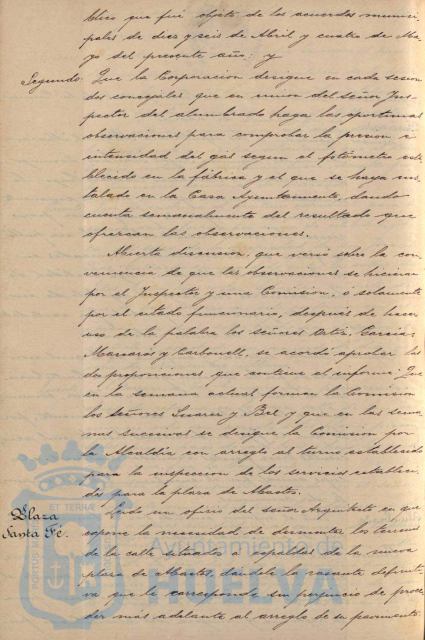 blico que fué objeto de los acuerdos munici-
pales de diez y seis de Abril y cuatro de Ma-
yo del presente año: y
Segundo. Que la Corporacion designe en cada sesion
dos concejales que en union del señor Ins-
pector del alumbrado haga las oportunas
observaciones para comprobar la presion é
intensidad del gas segun el fotómetro esta-
blecido en la fábrica y el que se haya ins-
talado en la Casa Ayuntamiento, dando
cuenta semanalmente del resultado que
ofrezcan las observaciones.
Abierta discusion, que versó sobre la con-
veniencia de que las observaciones se hicieran
por el Inspector y una Comision, ó solamente
por el citado funcionario, despues de hacer
uso de la palabra los señores Ortiz, Garcia,
y Carbonell, se acordó aprobar las
dos proposiciones que contiene el informe: Que
en la semana actual formen la Comision
los señores Suarez y Bel y que en las sema-
nas sucesivas se designe la Comision por
la Alcaldia con arreglo al turno establecido
para la inspeccion de los servicios estableci-
dos para la plaza de Abastos.
Plaza
Santa Fé.
Leido un oficio del señor Arquitecto en que
expone la necesidad de desmontar los terrenos
de la calle situada á espaldas de la nueva
plaza de Abastos, dándole la rasante definiti-
va que le corresponde sin perjuicio de proce-
der más adelante al arreglo de su pavimento
PORTUS
TERRAE
Ayuntamiento de
HUELVA